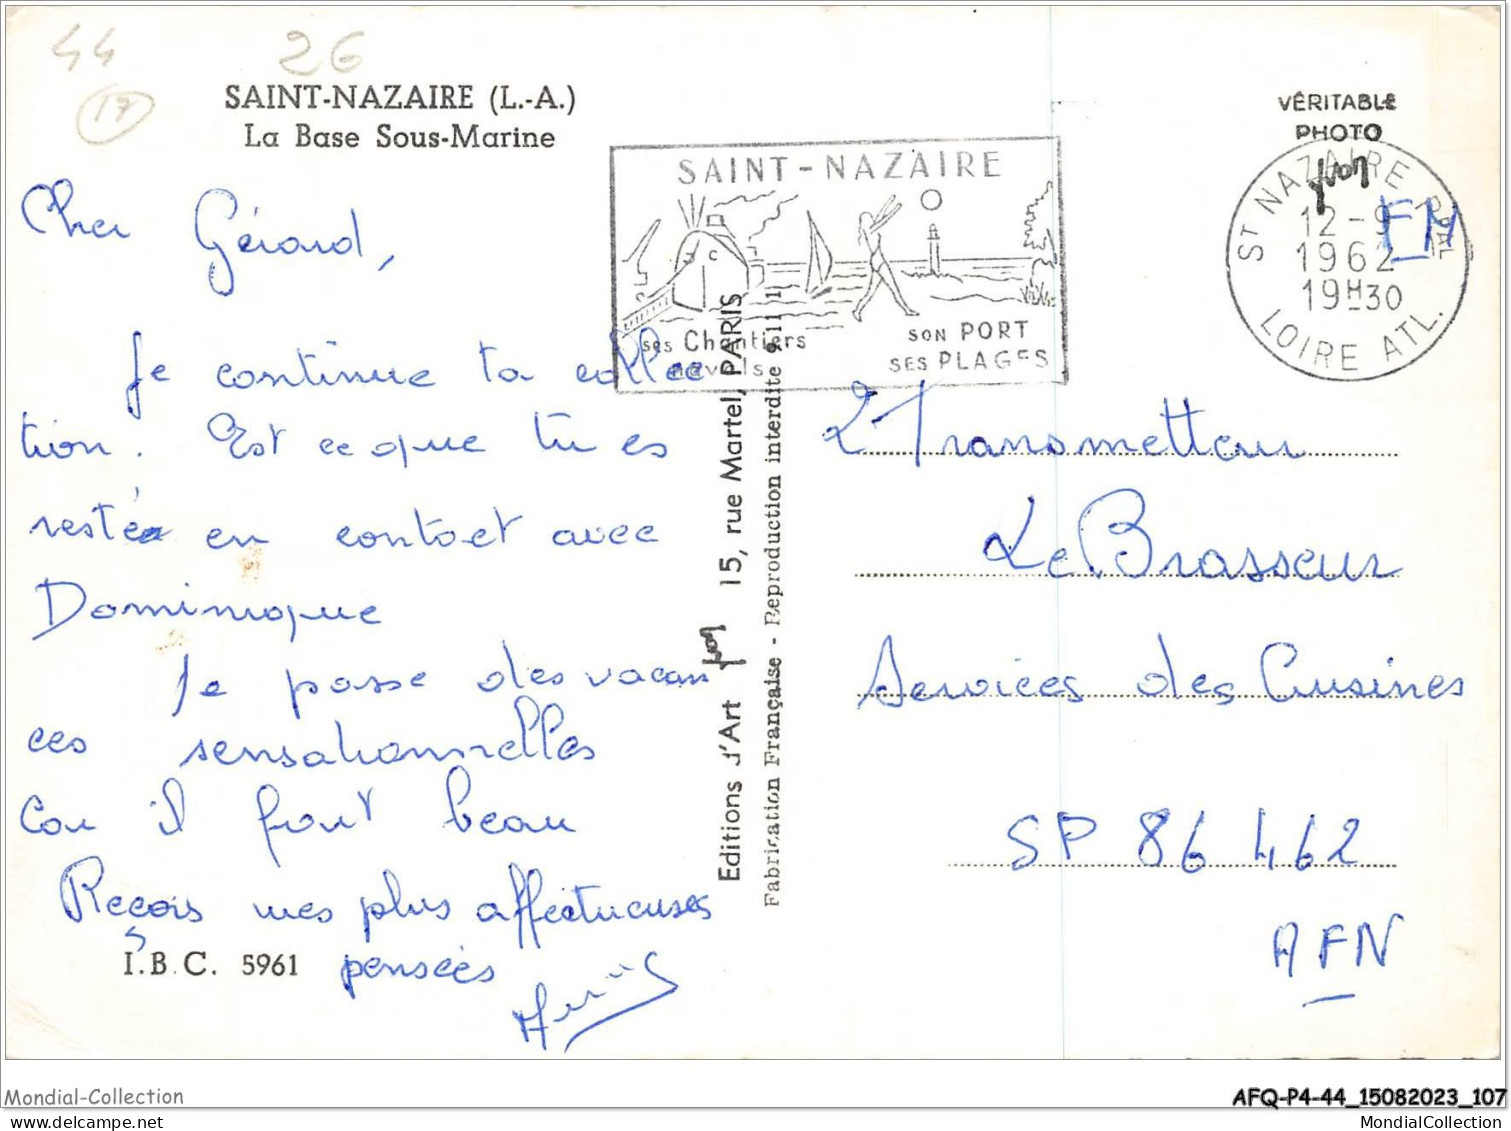 44
26
17
SAINT-NAZAIRE (L.-A.)
La Base Sous-Marine
Cher Gérard,
Je continue ta collec
tion. Est ce que tu es
resté en contact avec
Dominique
Je passe des vacan
ces sensationnelles
Car il fait beau
Reçois mes plus affectueuses
pensées
I.B.C. 5961
SAINT-NAZAIRE
ses Chantiers
navals
SON PORT
SES PLAGES
Editions d'Art yvon 15, rue Martel, PARIS
Fabrication Française - Reproduction interdite 9.11 1
VÉRITABLE
PHOTO
yvon
ST NAZAIRE PPAL
12-9
1962
19H30
LOIRE ATL.
FM
2e Transmetteur
Le Brasseur
Services des Cuisines
SP 86 462
AFN
Mondial-Collection
AFQ-P4-44_15082023_107
MondialCollection